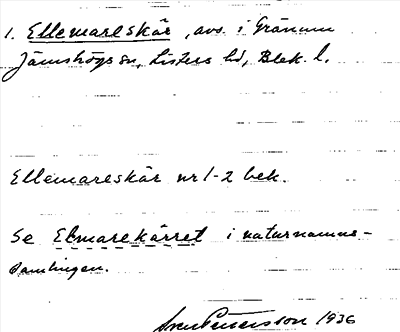 1. Ellemareskär, avs. i Gränum
Jämshögs sn, Listers hd, Blek. l.
Ellemareskär nr 1-2 bek.
Se Elmarekärret i naturnamns-
samlingen.
Sven Petersson 1936